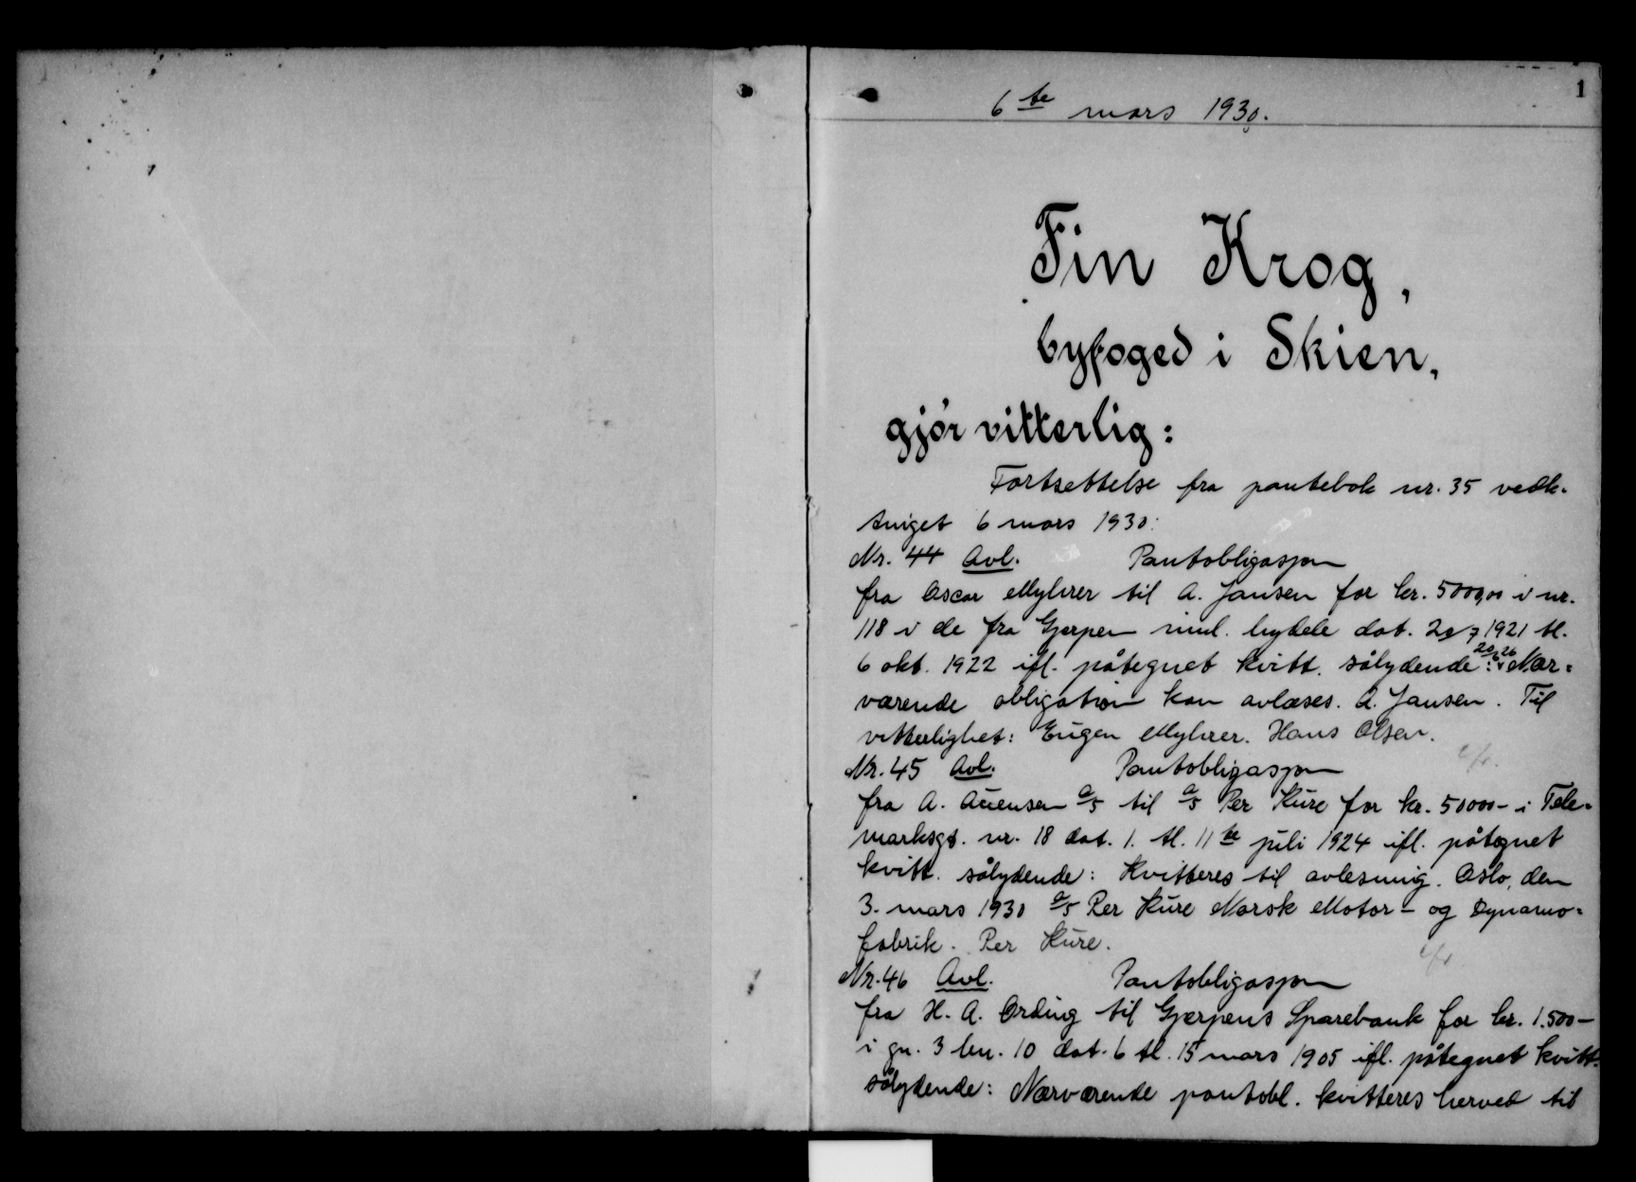 1
6te mars 1930.
Fin Krog,
byfoged i Skien,
gjør vitterlig:
Fortsettelse fra pantebok nr. 35 vedk.
tinget 6 mars 1930:
Nr. 44 Avl. Pantobligasjon
fra Oscar Myhrer til A. Jansen for kr. 5000,00 i nr.
118 i de fra Gjerpen innl. bydele dat. 1921 tl.
6 okt. 1922 ifl. påtegnet kvitt. sålydende: Nær=
værende obligation kan avlæses. A. Jansen. Til
vitterlighet: Eugen Myhrer. Hans Olsen.
Nr. 45 Avl. Pantobligasjon
fra A. Auensen A/S til A/S Per Kure for kr. 50000- i Tele=
marksgt. nr. 18 dat. 1. tl. 11te juli 1924 ifl. påtegnet
kvitt. sålydende: Kvitteres til avlesning. Oslo, den
3. mars 1930 A/S Per Kure Norsk Motor- og Dynamo=
fabrik. Per Kure.
Nr. 46 Avl. Pantobligasjon
fra H. A. Ording til Gjerpens Sparebank for kr. 1.500-
i gn. 3 bn. 10 dat. 6 tl. 15 mars 1905 ifl. påtegnet kvitt.
sålydende: Nærværende pantobl. kvitteres herved til